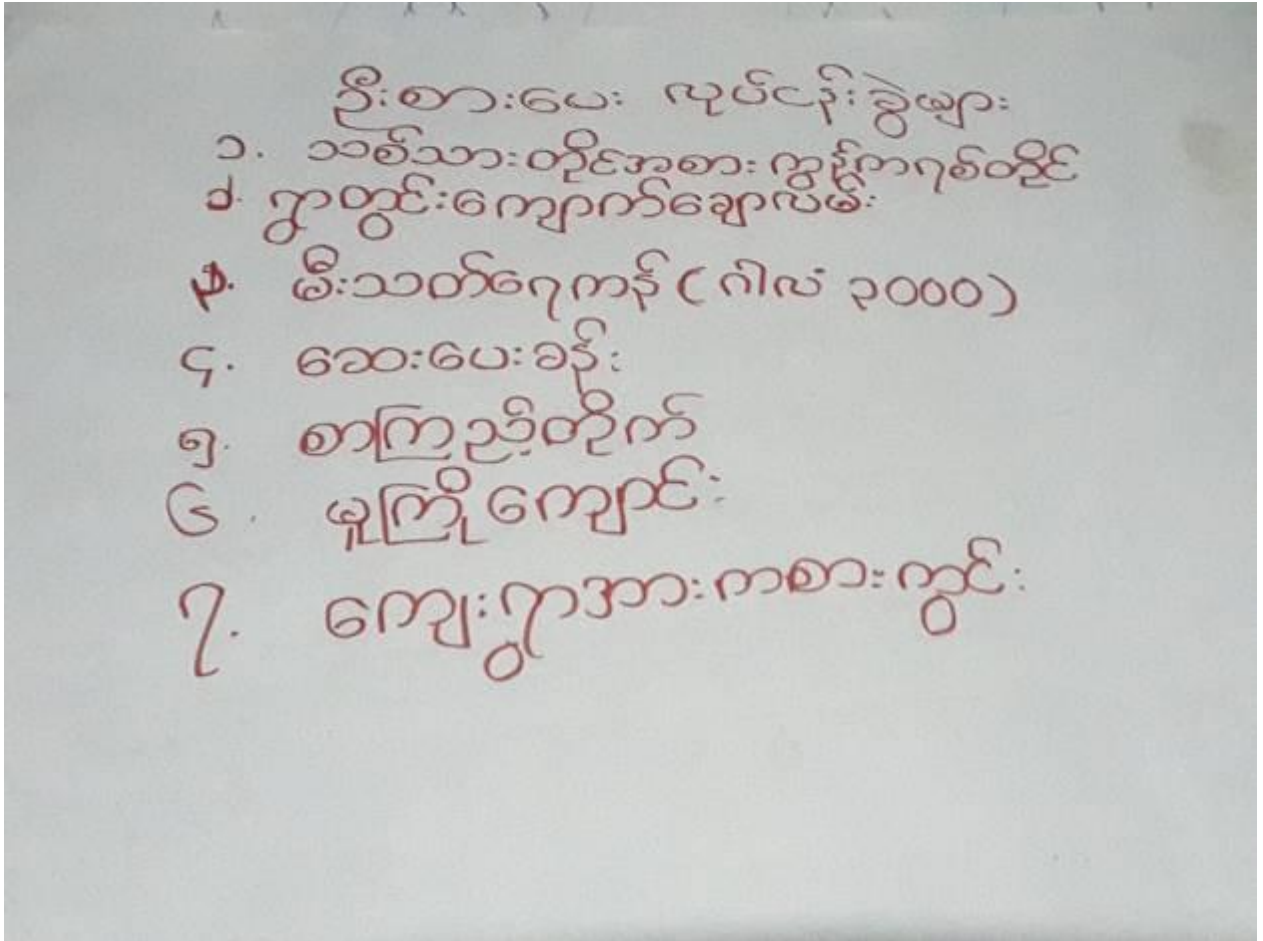 ဦးစားပေး လုပ်ငန်းခွဲများ
၁. သစ်သားတိုင်အစား ကွန်ကရစ်တိုင်
၂. ရွာတွင်းကျောက်ချောလမ်း
၃. မီးသတ်ရေကန် (ဂါလံ ၃၀၀၀)
၄. ဆေးပေးခန်း
၅. စာကြည့်တိုက်
၆. မူကြိုကျောင်း
၇. ကျေးရွာအားကစားကွင်း